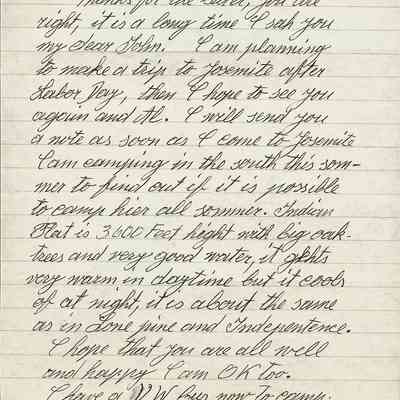 Thanks for the letter, you are
right, it is a long time I sah you
my dear John. I am planning
to make a trip to Josemite after
Labor Day, then I hope to see you
again and Al. I will send you
a note as soon as I come to Josemite
I am camping in the south this som-
mer to find out if it is possible
to camp hier all sommer. Indian
Flat is 3600 Feet hight with big oak-
trees and very good water, it ghts
very warm in daytime but it cools
of at night, it is about the same
as in Lone pine and Indepentence.
I hope that you are all well
and happy I am OK too.
I have a VW bus now to camp.